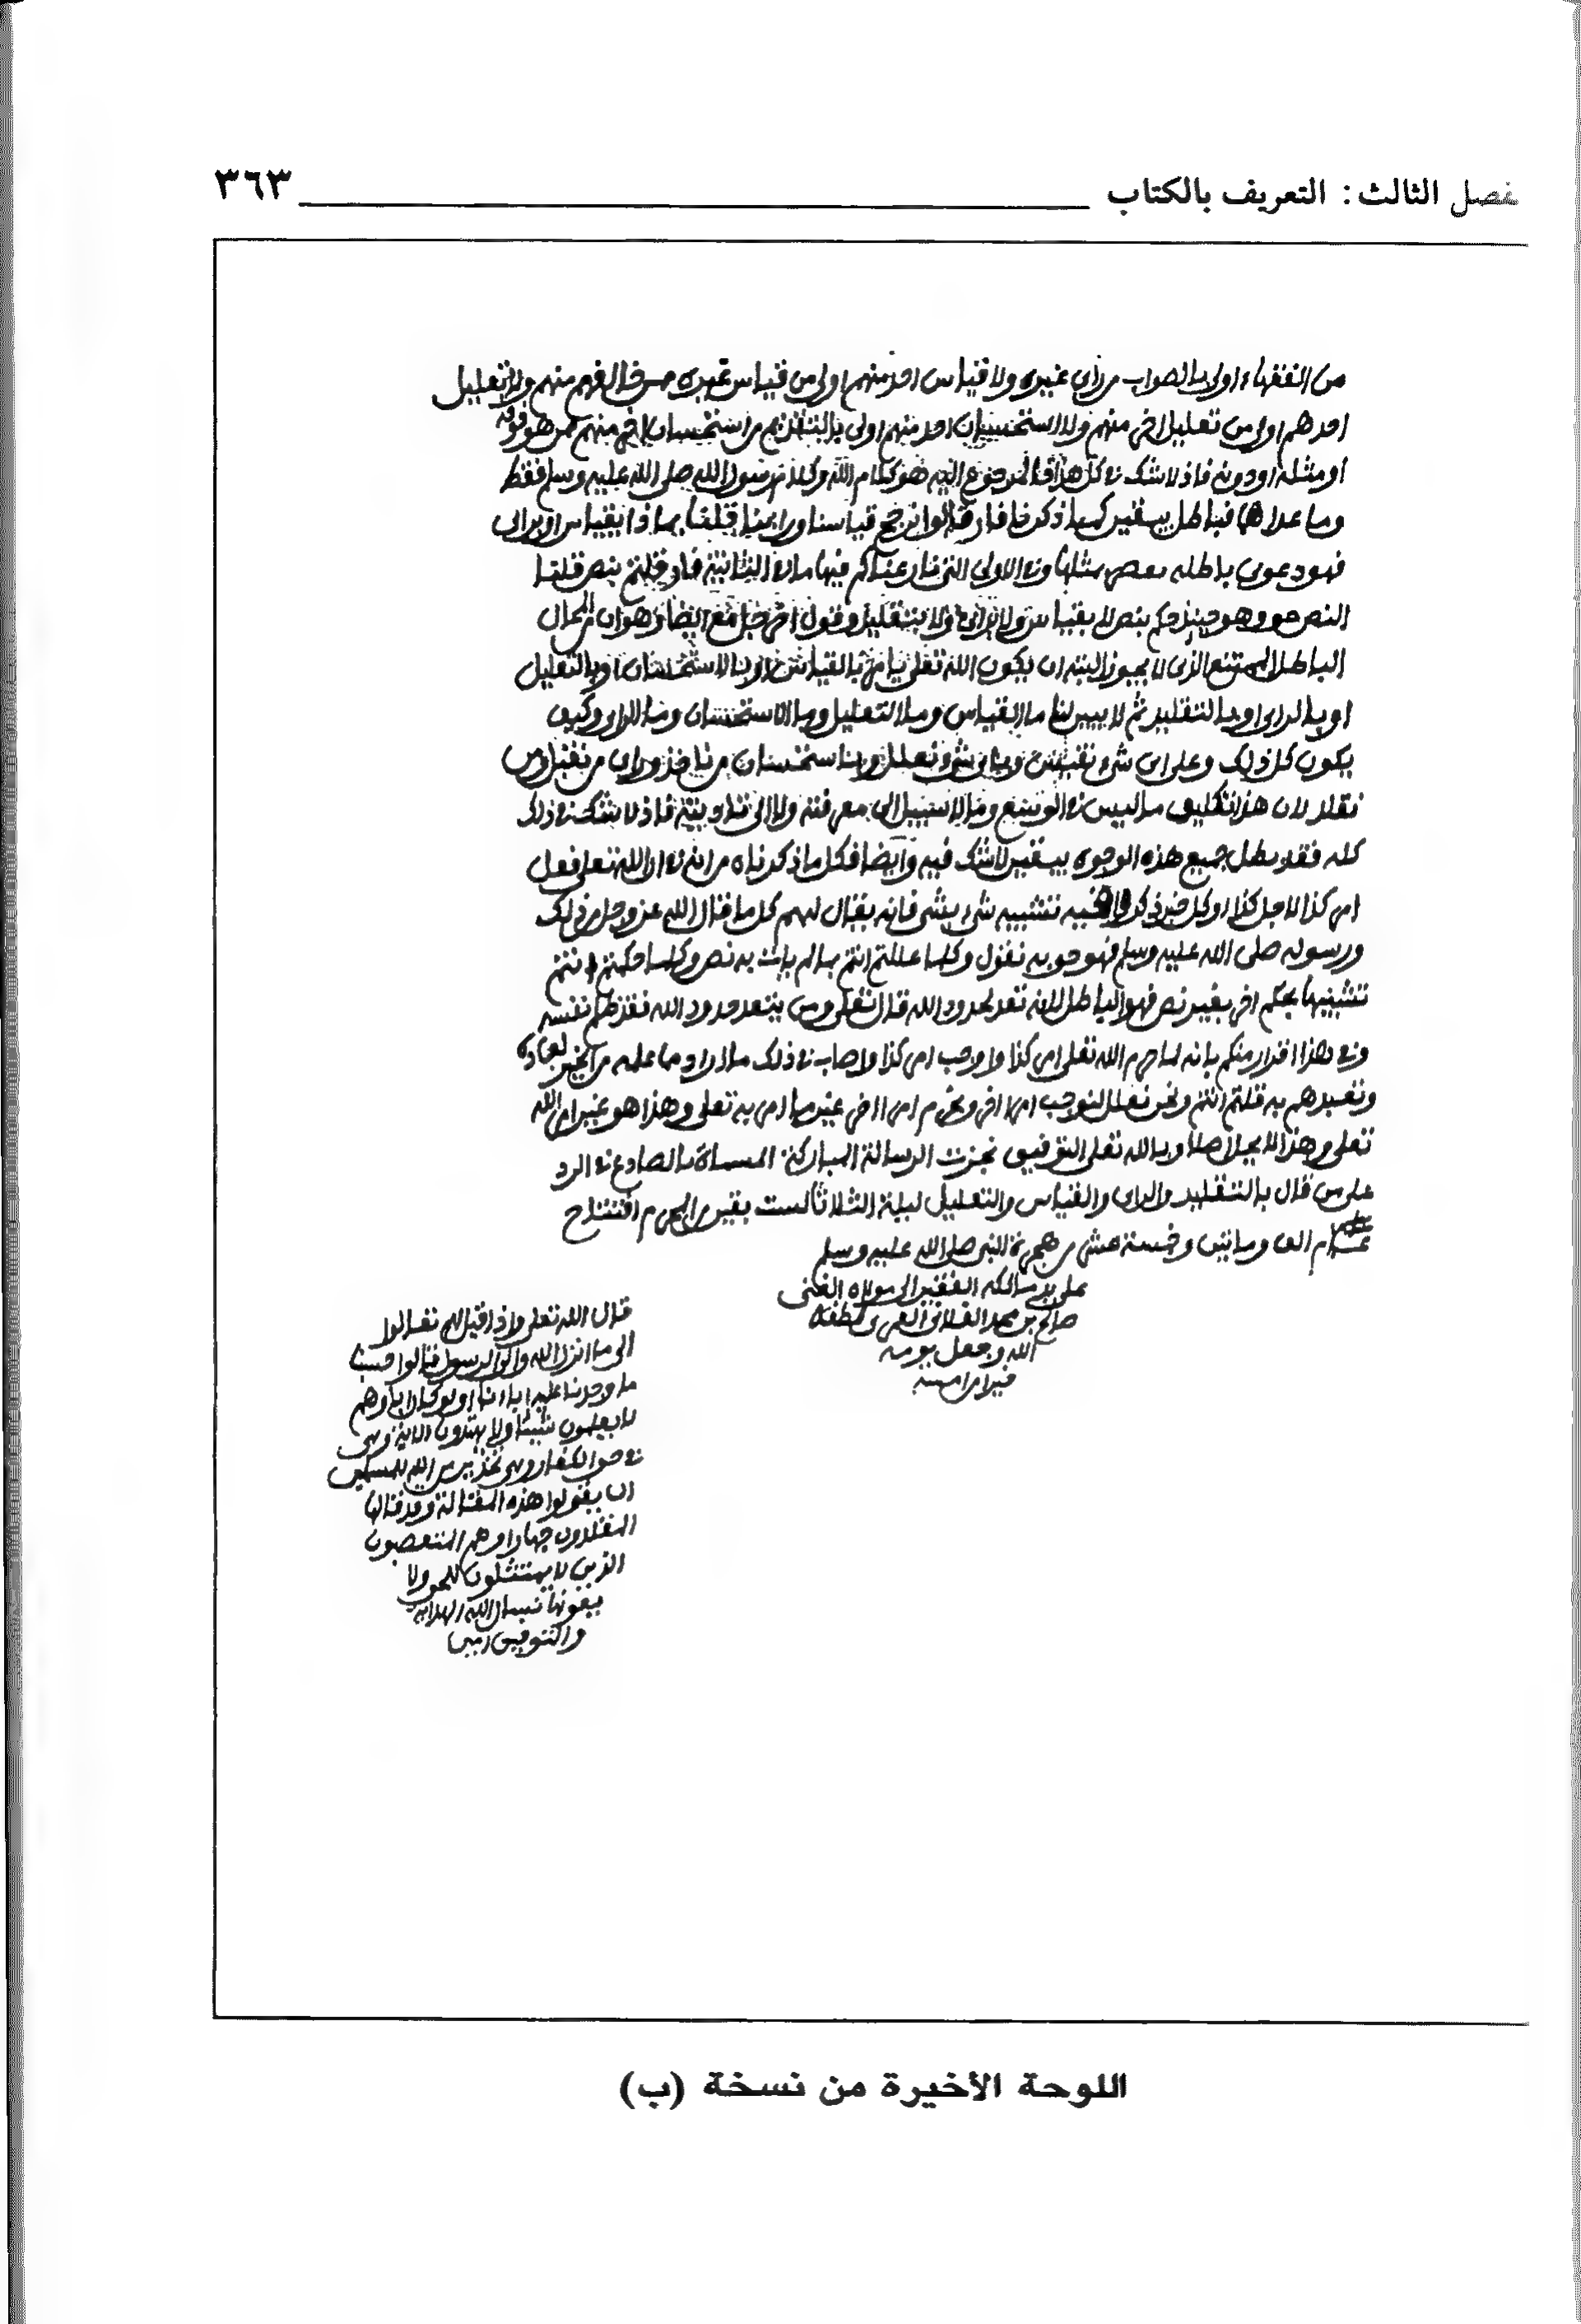 فصل الثالث: التعريف بالكتاب ٣٦٣
من الفقهاء اولى بالصواب من راي غيره ولا قياس احد منهم اولى من قياس غيره منهم ولا تعليل
احدهم اولى من تعليل اخر منهم ولا استحسان احد منهم اولى بالتقديم من استحسان اخر منهم ممن هو فوقه
او مثله او دونه فاذ لا شك في كل هذا فالمرجوع اليه هو كلام الله وكلام رسول الله صلى الله عليه وسلم فقط
وما عداهما فباطل بيقين كما ذكرنا فان قالوا نرجح قياسنا وراينا قلنا بماذا ابقياس او براي
فهو دعوى باطله بعض مثلها وفي الاولى التي نازعناكم فيها ما في الثانية فان قلتم بنص قلنا
النص حق وهو حينئذ حكم بنص لا بقياس ولا براي ولا بتقليد وقول اخر جامع ايضا وهو ان المحال
الباطل الممتنع الذي لا يجوز البته ان يكون الله تعلى يامر بالقياس او بالاستحسان او بالتعليل
او بالراي او بالتقليد ثم لا يبين لنا ما القياس وما التعليل وما الاستحسان وما الراي وكيف
يكون كل ذلك وعلى اي شيء نقيس وباي شيء نعلل وبنا استحسان من ناخذ وراي من نقبل ومن
نقلد لان هذا تكليف ما ليس في الوسع وما لا سبيل الى معرفته ولا الى تاديته فاذ لا شك في ذلك
كله فقد بطل جميع هذه الوجوه بيقين لا شك فيه وايضا فكل ما ذكرناه من انه ان الله تعلى فعل
امر كذا لاجل كذا او كل خبر ذكر فيه تشبيه شيء بشي فانه يقال لهم كل ما قال الله عز وجل من ذلك
ورسوله صلى الله عليه وسلم فهو حق به نقول وكلما عللتم انتم ما لم يات به نص وكلما حكمتم انتم
تشبيها بحكم اخر بغير نص فهو الباطل لانه تعد لحدود الله قال تعلى ومن يتعد حدود الله فقد ظلم نفسه
وفي هذا اقرار منكم بانه لما حرم الله تعلى امر كذا واوجب امر كذا واصاب في ذلك ما اراد وما علمه من الخير لعباده
وتعبدهم به قلتم انتم ونحن نعلل لنوجب امرا اخر ونحرم امرا اخر غير ما امر به تعلى وهذا هو غير امر الله
تعلى وهذا لا يحل اصلا وبالله تعلى التوفيق نجزت الرسالة المباركة المسماة بالصادع في الرد
على من قال بالتقليد والراي والقياس والتعليل ليلة الثلاثا لست بقين من المحرم افتتاح
عام الف ومايتين وخمسة عشر من هجرة النبي صلى الله عليه وسلم
على يد مالكه الفقير الى مولاه الغني
صالح بن محمد الفلاني العمري لطف
الله وجعل يومه
خيرا من امسه
قال الله تعلى واذا قيل لهم تعالوا
الى ما انزل الله والى الرسول قالوا حسبنا
ما وجدنا عليه اباءنا اولو كان اباوهم
لا يعلمون شيئا ولا يهتدون الاية وهي
في حق الكفار وهي تحذير من الله للمسلمين
ان يقولوا هذه المقالة وقد قالها
المقلدون جهارا وهم المتعصبون
الذين لا يمتثلون للحق ولا
يبغونه نسال الله الهداية
والتوفيق امين
اللوحة الأخيرة من نسخة (ب)